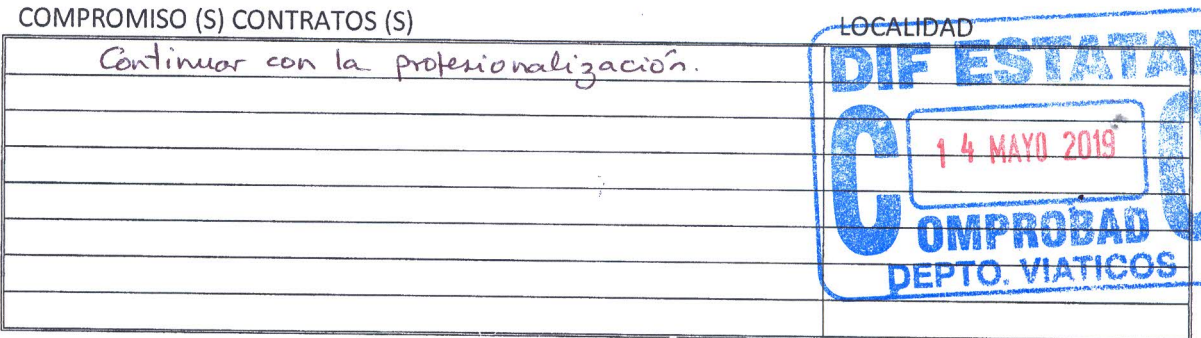 COMPROMISO (S) CONTRATOS (S)
LOCALIDAD
Continuar con la profesionalización.
DIF ESTATAL
14 MAYO 2019
COMPROBADO
DEPTO. VIATICOS